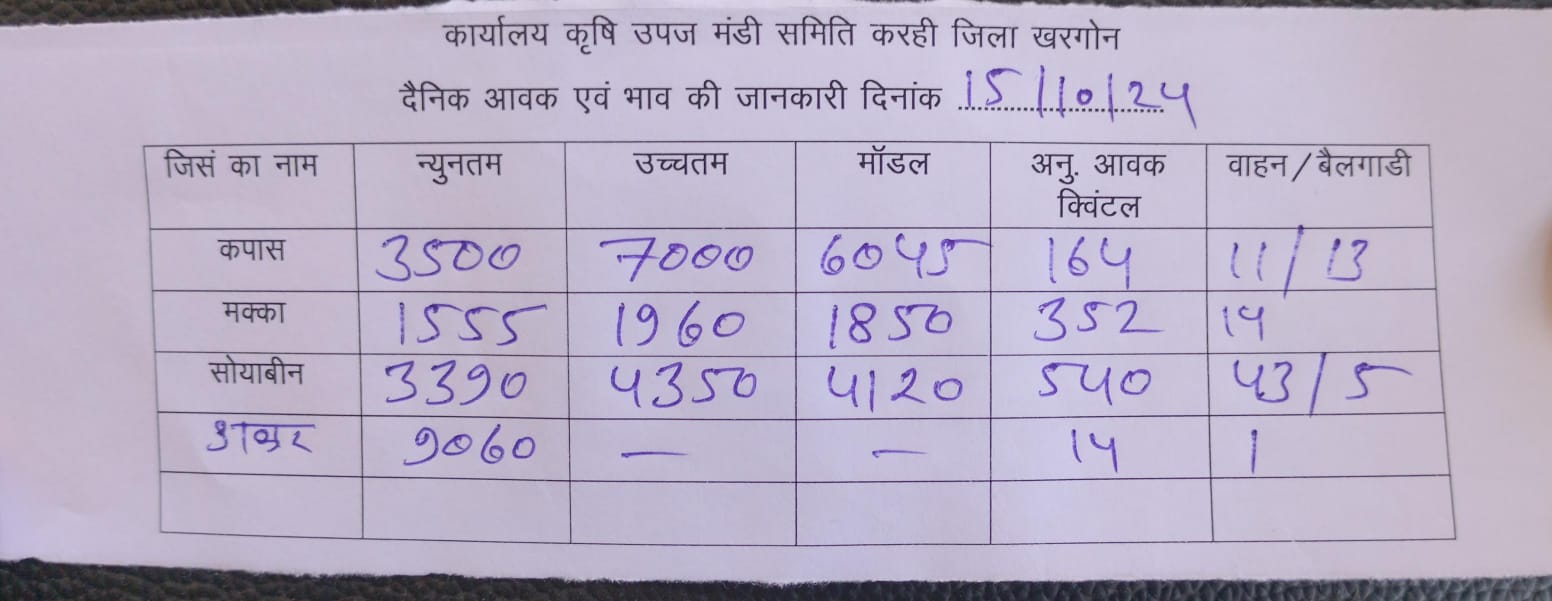 कार्यालय कृषि उपज मंडी समिति करही जिला खरगोन
दैनिक आवक एवं भाव की जानकारी दिनांक 15/10/24
जिसं का नाम न्युनतम उच्चतम मॉडल अनु. आवक क्विंटल वाहन/बैलगाडी
कपास 3500 7000 6045 164 11/13
मक्का 1555 1960 1850 352 14
सोयाबीन 3390 4350 4120 540 43/5
9060 — — 14 1